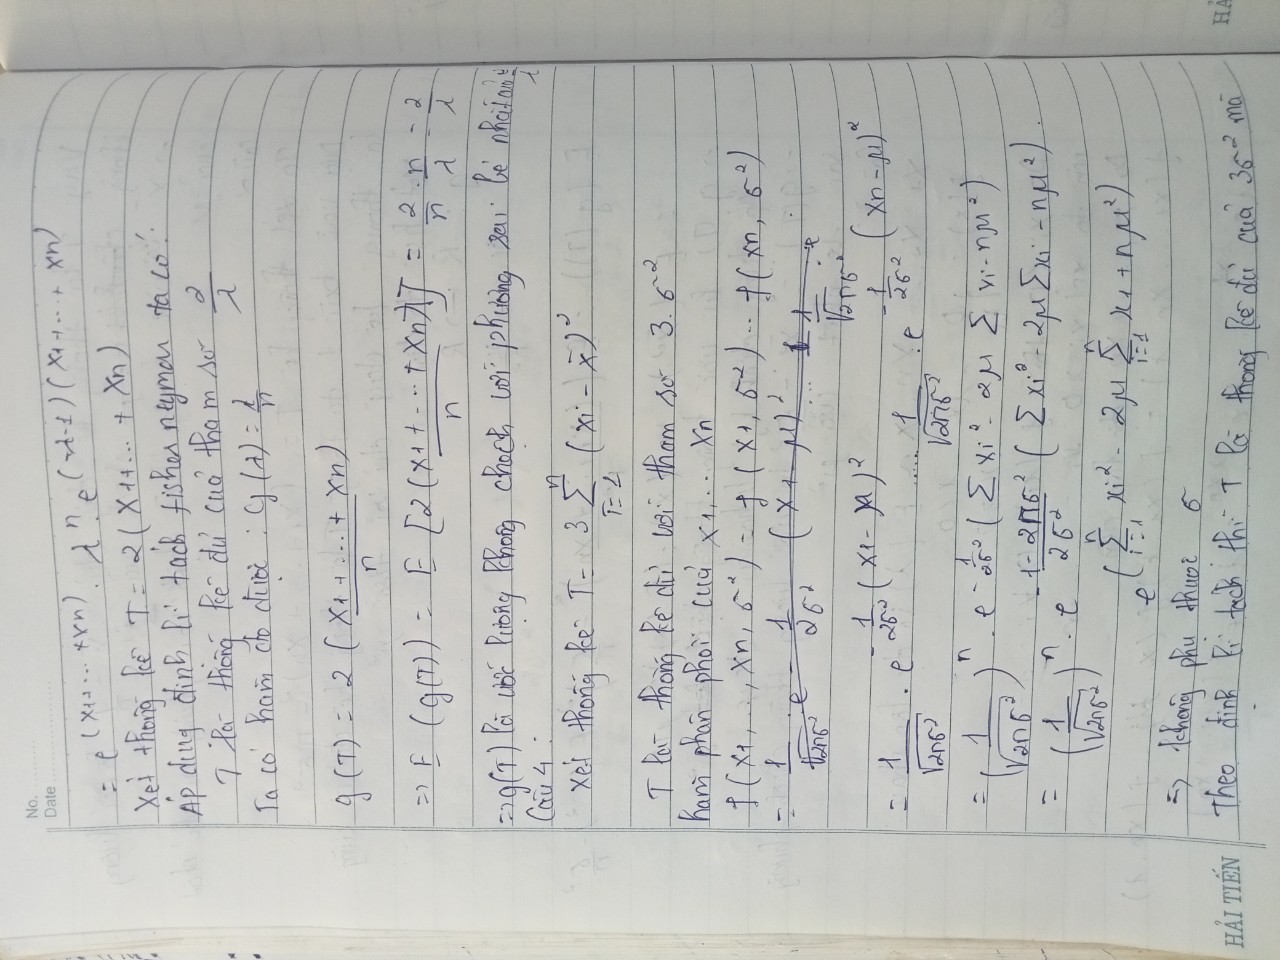 No. ............
Date ..................
= e^(x1+...+xn) . λ^n . e^(-λ-1)(x1+...+xn)
Xét thống kê T = 2(X1+...+Xn)
Áp dụng định lí tách fisher neyman ta có:
T là thống kê đủ của tham số 2/λ
Ta có hàm do dưới: g(λ) = 1/n
g(T) = 2 (x1+...+xn)/n
=> E(g(T)) = E[2(x1+...+xn)/n] = 2/n . n/λ = 2/λ
=> g(T) là ước lượng không chệch với phương sai bé nhất của 2/λ
Câu 4.
Xét thống kê T = 3 Σ_{i=1}^{n} (xi - x̄)²
T là thống kê đủ với tham số 3.σ²
hàm phân phối của x1,... xn
f(x1,..., xn, σ²) = f(x1, σ²) ... f(xn, σ²)
= 1/√2πσ² . e^-1/2σ² (x1-μ)² ... 1/√2πσ² . e
= 1/√2πσ² . e^-1/2σ² (x1-μ)² ..... 1/√2πσ² . e^-1/2σ² (xn-μ)²
= (1/√2πσ²)^n . e^-1/2σ² (Σ xi² - 2μ Σ xi - nμ²)
= (1/√2πσ²)^n . e (Σ xi² - 2μ Σ xi - nμ²).
e (Σ_{i=1}^{n} xi² - 2μ Σ_{i=1}^{n} x1 + nμ²)
=> không phụ thuộc σ
Theo định lí tách thì T là thống kê đủ của 3σ² mà
HẢI TIẾN
HẢ